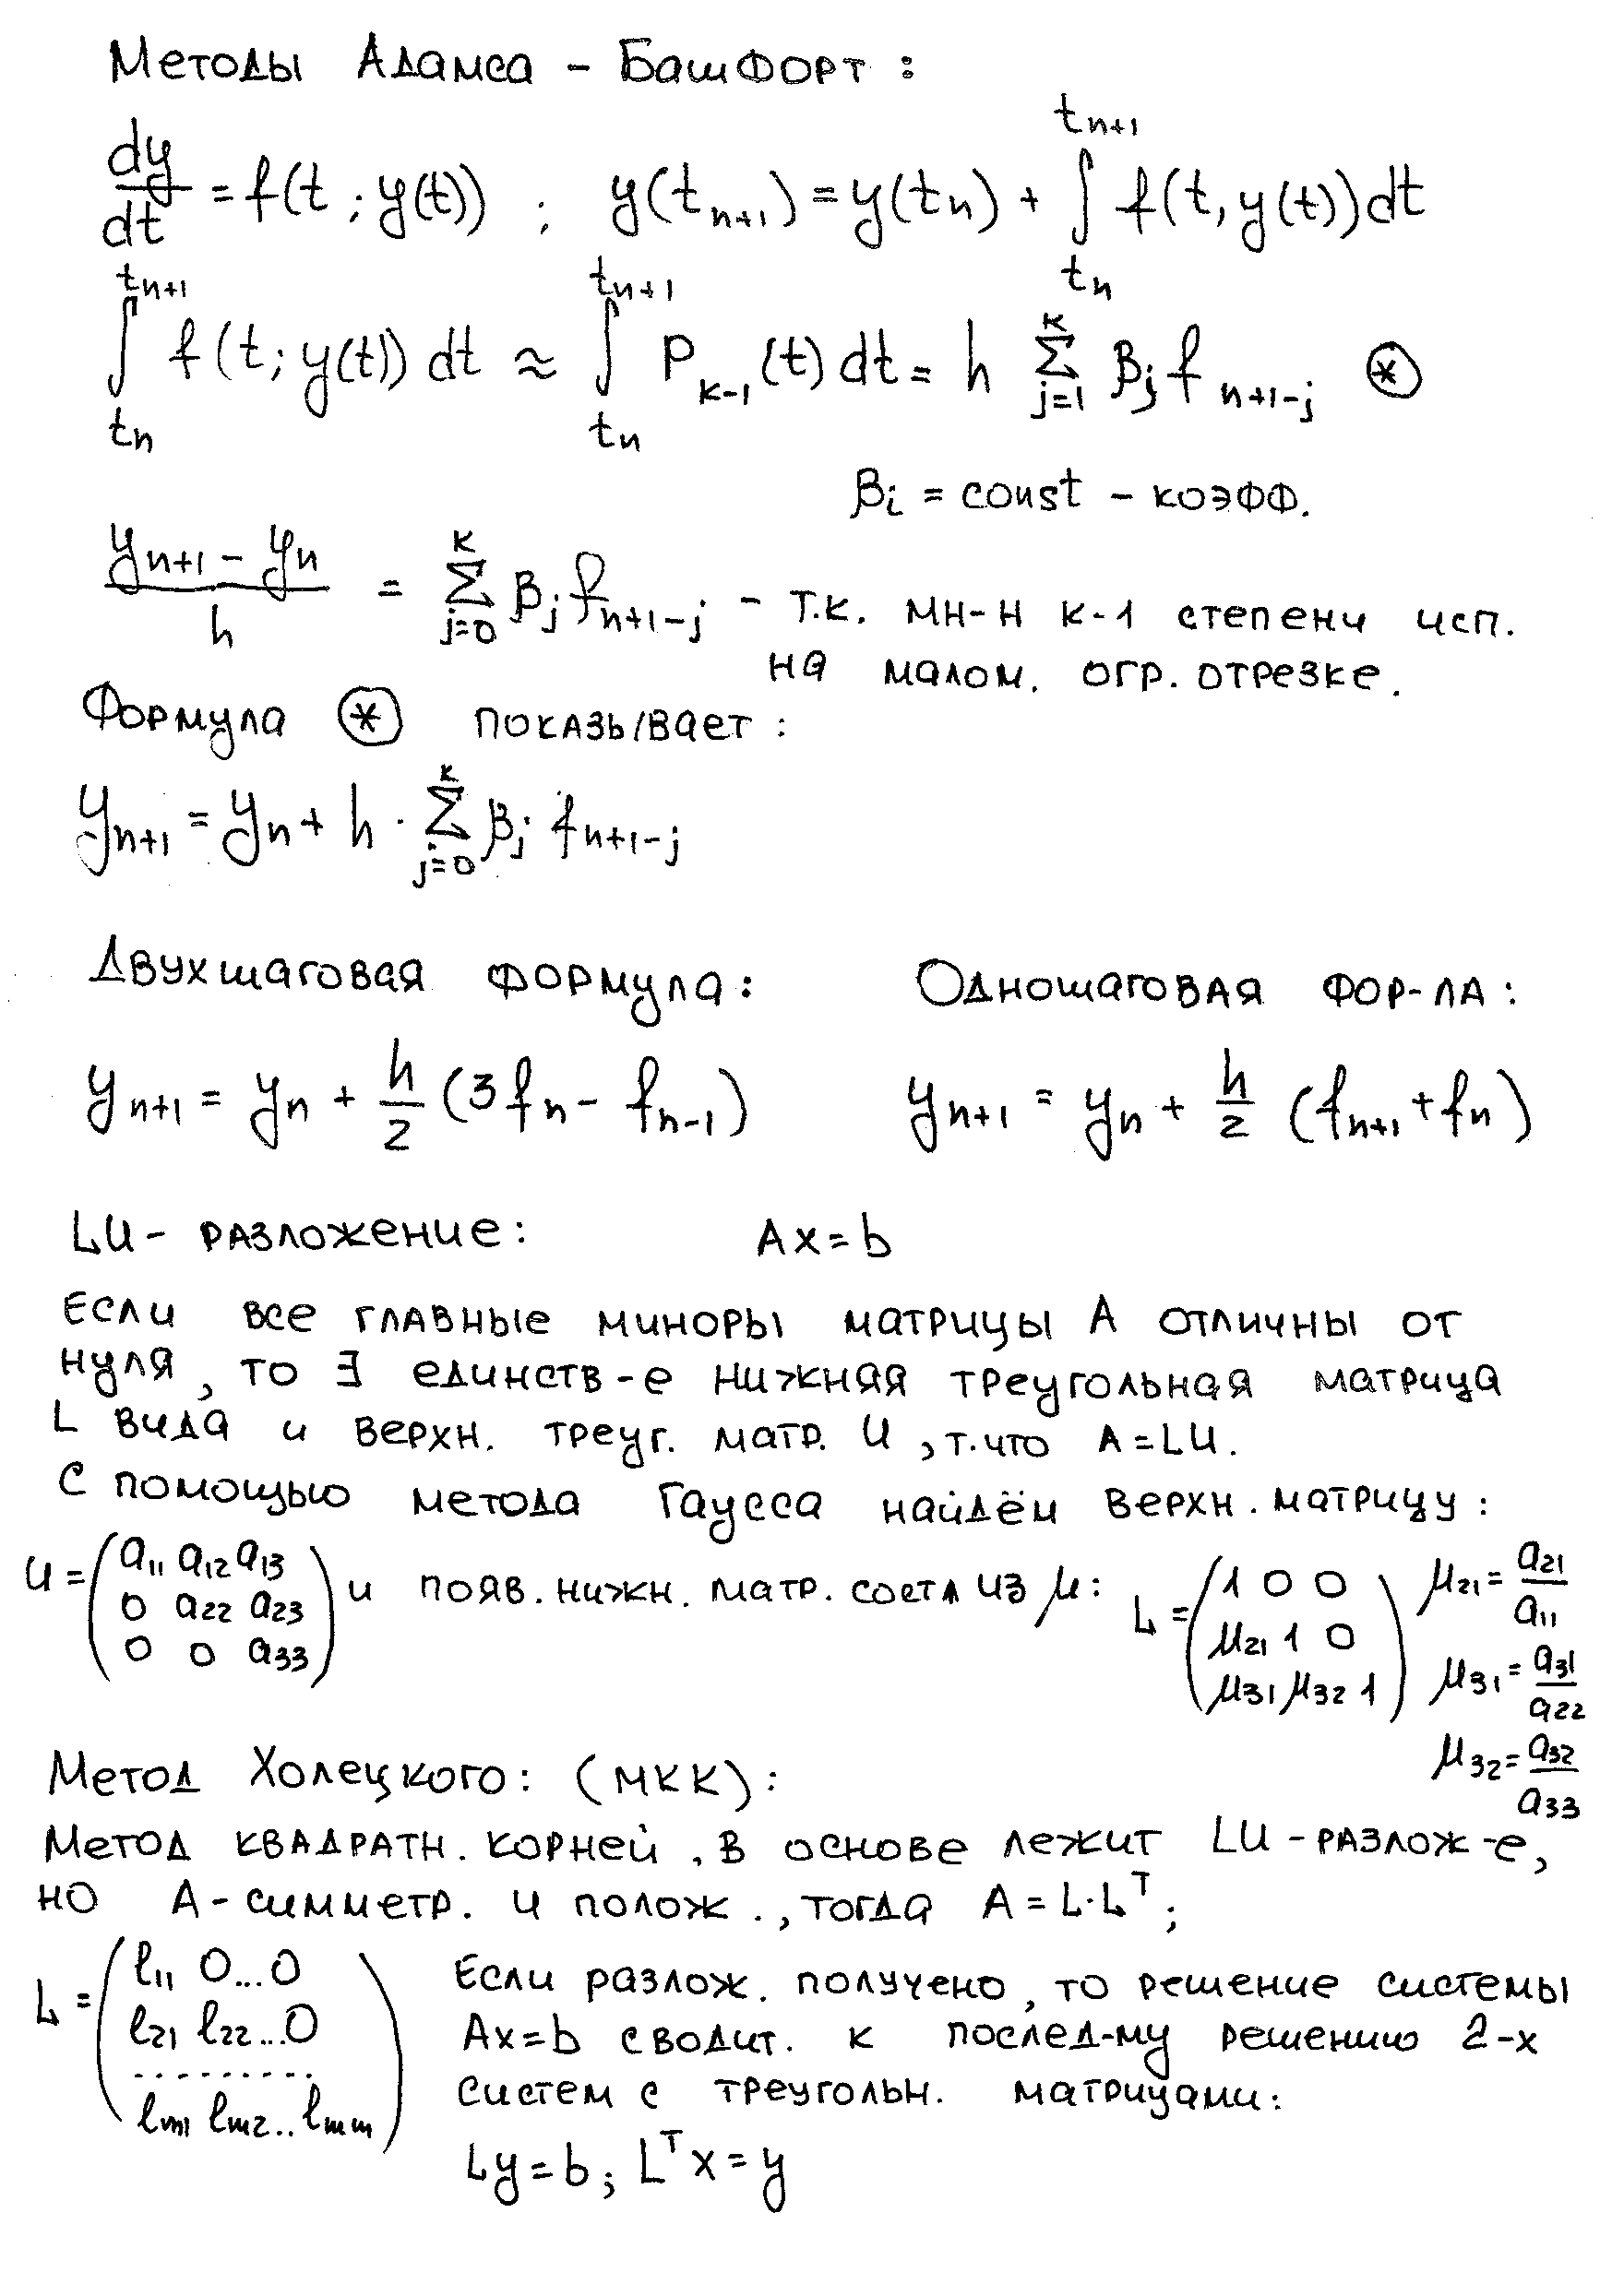 Методы Адамса - Башфорт:
dy/dt = f(t; y(t)) ; y(t_{n+1}) = y(t_n) + ∫_{t_n}^{t_{n+1}} f(t, y(t))dt
∫_{t_n}^{t_{n+1}} f(t; y(t)) dt ≈ ∫_{t_n}^{t_{n+1}} P_{k-1}(t) dt = h ∑_{j=1}^{k} β_j f_{n+1-j} ⊛
β_i = const - коэфф.
(y_{n+1} - y_n)/h = ∑_{j=0}^{k} β_j f_{n+1-j} - т.к. мн-н к-1 степени исп.
на малом. огр. отрезке.
Формула ⊛ показывает:
y_{n+1} = y_n + h · ∑_{j=0}^{k} β_j f_{n+1-j}
Двухшаговая формула: Одношаговая фор-ла:
y_{n+1} = y_n + h/2 (3f_n - f_{n-1}) y_{n+1} = y_n + h/2 (f_{n+1} + f_n)
LU - разложение: Ax=b
Если все главные миноры матрицы А отличны от
нуля, то ∃ единств-е нижняя треугольная матрица
L вида и верхн. треуг. матр. U, т.что A=LU.
С помощью метода Гаусса найдём верхн. матрицу:
U = (a_{11} a_{12} a_{13}; 0 a_{22} a_{23}; 0 0 a_{33}) и появ. нижн. матр. сост из μ: L = (1 0 0; μ_{21} 1 0; μ_{31} μ_{32} 1) μ_{21} = a_{21}/a_{11}
μ_{31} = a_{31}/a_{22}
μ_{32} = a_{32}/a_{33}
Метод Холецкого: (МКК):
Метод квадратн. корней, в основе лежит LU-разлож-е,
но А-симметр. и полож., тогда A = L·L^T;
L = (l_{11} 0...0; l_{21} l_{22}...0; .........; l_{m1} l_{m2}..l_{mm})
Если разлож. получено, то решение системы
Ax=b сводит. к послед-му решению 2-х
систем с треугольн. матрицами:
Ly=b; L^T x = y